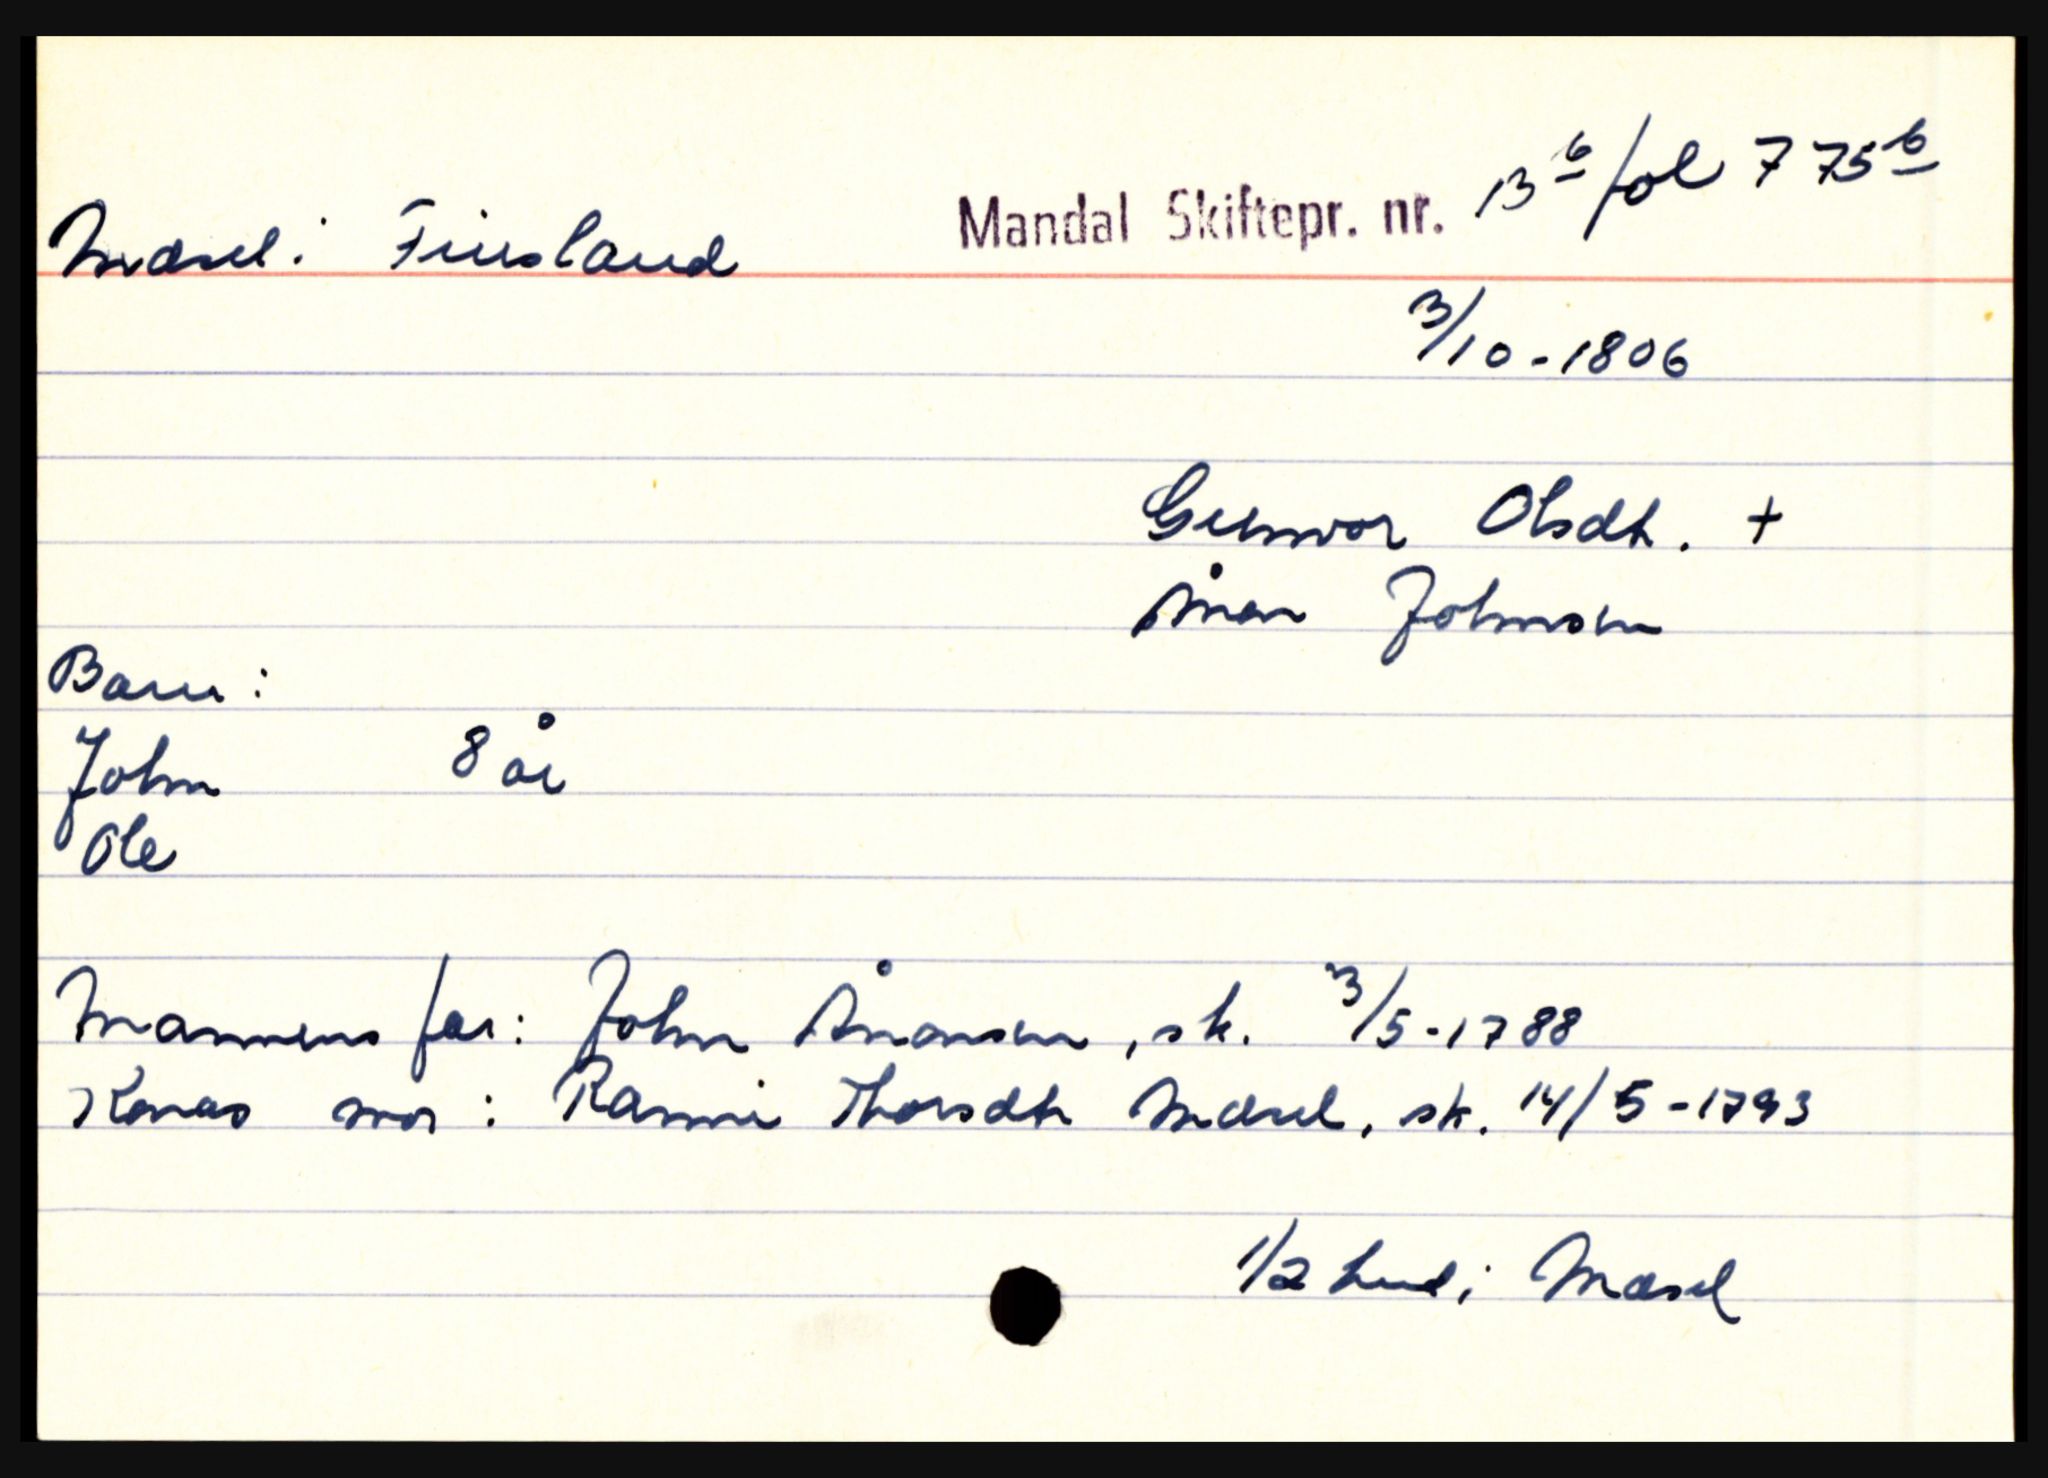 Mæsel i Finsland Mandal Skiftepr. nr. 13b fol 775b
3/10-1806
Gunvor Olsdtr. +
Ånen Johnsen
Barn:
John 8 år
Ole
Mannens far: John Ånensen, sk. 3/5-1788
Konas mor: Ranni Thorsdtr Mæsel, sk. 14/5-1793
1/2 hud i Mæsel